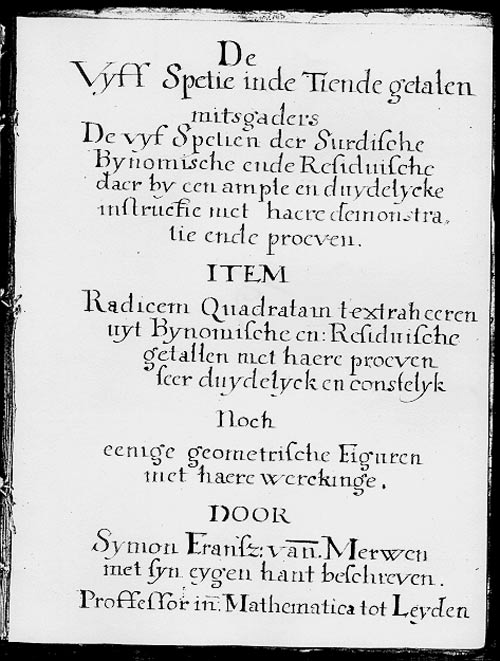 De
Vyff Spetie inde Tiende getalen
mitsgaders
De vyf Spetien der Surdische
Bynomische ende Residuische
daer by een ample en duydelycke
instructie met haere demonstra,
tie ende proeven.
ITEM
Radicem Quadratam t'extraheeren
uyt Bynomische en: Residuische
getallen met haere proeven
seer duydelyck en constelyk
Noch
eenige geometrische Figuren
met haere werckinge.
DOOR
Symon Fransz: van. Merwen
met syn eygen hant beschreven.
Proffessor in: Mathematica tot Leyden